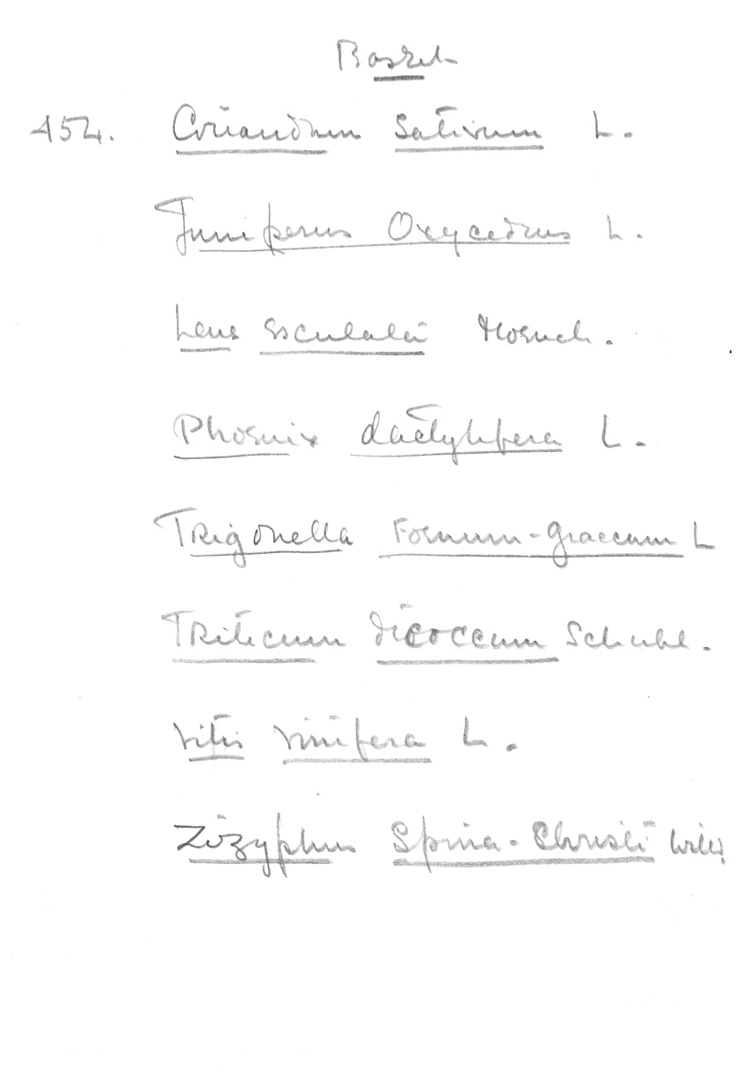 Basket
452. Coriandrum sativum L.
Juniperus Oxycedrus L.
Lens esculenta Moench.
Phoenix dactylifera L.
Trigonella Foenum-graecum L
Triticum dicoccum Schubl.
Vitis vinifera L.
Zizyphus Spina-Christi Willd